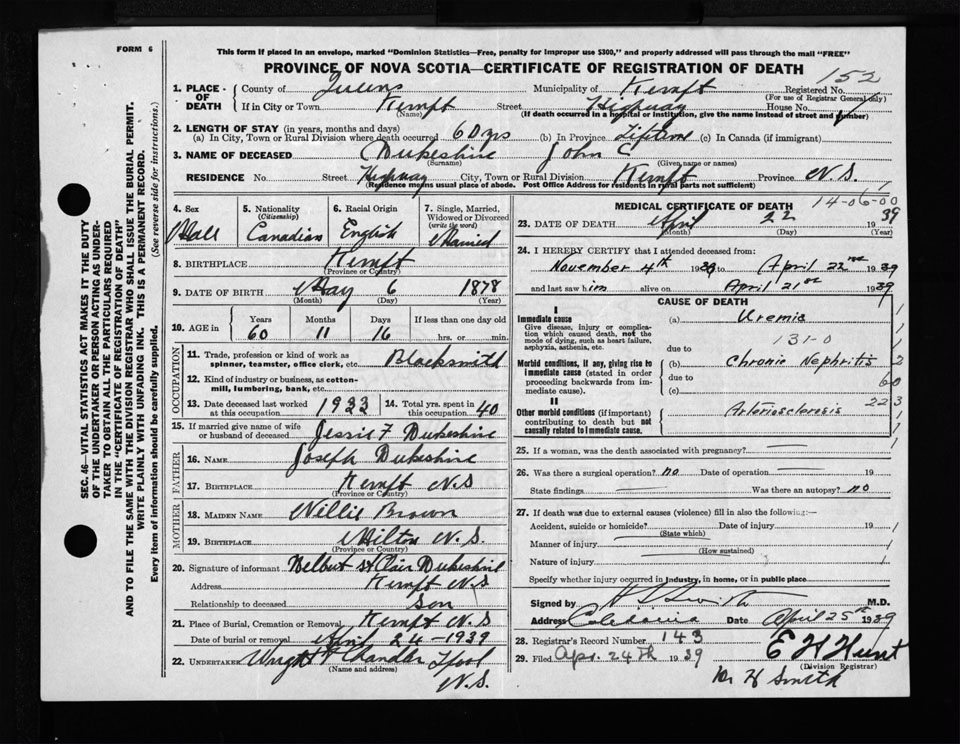 FORM 6
This form if placed in an envelope, marked "Dominion Statistics—Free, penalty for improper use $300," and properly addressed will pass through the mail "FREE"
PROVINCE OF NOVA SCOTIA—CERTIFICATE OF REGISTRATION OF DEATH
152
1. PLACE OF DEATH County of Queens Municipality of Kempt Registered No.
(For use of Registrar General only)
If in City or Town Kempt Street Highway House No.
(Name) (If death occurred in a hospital or institution, give the name instead of street and number)
2. LENGTH OF STAY (in years, months and days)
(a) In City, Town or Rural Division where death occurred 60 yrs (b) In Province Lifetime (c) In Canada (if immigrant)
3. NAME OF DECEASED Dukeshire John C
(Surname) (Given name or names)
RESIDENCE No. Street Highway City, Town or Rural Division Kempt Province N.S.
(Residence means usual place of abode. Post Office Address for residents in rural parts not sufficient)
SEC. 46—VITAL STATISTICS ACT MAKES IT THE DUTY
OF THE UNDERTAKER OR PERSON ACTING AS UNDER-
TAKER TO OBTAIN ALL THE PARTICULARS REQUIRED
IN THE "CERTIFICATE OF REGISTRATION OF DEATH"
AND TO FILE THE SAME WITH THE DIVISION REGISTRAR WHO SHALL ISSUE THE BURIAL PERMIT.
WRITE PLAINLY WITH UNFADING INK. THIS IS A PERMANENT RECORD.
Every item of information should be carefully supplied. (See reverse side for instructions.)
4. Sex 5. Nationality 6. Racial Origin 7. Single, Married,
(Citizenship) Widowed or Divorced
(write the word)
Male Canadian English Married
8. BIRTHPLACE Kempt
(Province or Country)
9. DATE OF BIRTH May 6 1878
(Month) (Day) (Year)
10. AGE in Years Months Days If less than one day old
60 11 16 hrs. or min.
OCCUPATION
11. Trade, profession or kind of work as
spinner, teamster, office clerk, etc. Blacksmith
12. Kind of industry or business, as cotton-
mill, lumbering, bank, etc.
13. Date deceased last worked
at this occupation 1933
14. Total yrs. spent in
this occupation 40
15. If married give name of wife
or husband of deceased Jessie F Dukeshire
FATHER
16. NAME Joseph Dukeshire
17. BIRTHPLACE Kempt N.S
(Province or Country)
MOTHER
18. MAIDEN NAME Millie Brown
19. BIRTHPLACE Milton N.S.
(Province or Country)
20. Signature of informant Delbert St Clair Dukeshire
Address Kempt N.S
Relationship to deceased Son
21. Place of Burial, Cremation or Removal Kempt N.S
Date of burial or removal April 24 - 1939
22. UNDERTAKER Wright Chandler
(Name and address)
N.S.
MEDICAL CERTIFICATE OF DEATH 14-06-00
23. DATE OF DEATH April 22 1939
(Month) (Day) (Year)
24. I HEREBY CERTIFY that I attended deceased from:
November 4th 1938 to April 22nd 1939
and last saw him alive on April 21st 1939
CAUSE OF DEATH
I
Immediate cause
Give disease, injury or complica-
tion which caused death, not the
mode of dying, such as heart failure,
asphyxia, asthenia, etc.
(a) Uremia
131-0
due to
Morbid conditions, if any, giving rise to
immediate cause (stated in order
proceeding backwards from im-
mediate cause).
(b) Chronic Nephritis 2
due to 60
(c)
II
Other morbid conditions (if important)
contributing to death but not
causally related to immediate cause.
223
Arteriosclerosis
25. If a woman, was the death associated with pregnancy?
26. Was there a surgical operation? no Date of operation 19
State findings Was there an autopsy? no
27. If death was due to external causes (violence) fill in also the following:—
Accident, suicide or homicide? Date of injury 19
(State which)
Manner of injury
(How sustained)
Nature of injury
Specify whether injury occurred in industry, in home, or in public place
Signed by Smith M.D.
Address Caledonia Date April 25th 1939
28. Registrar's Record Number 143
29. Filed Apr. 24th 1939 E H Hunt
(Division Registrar)
Dr H Smith